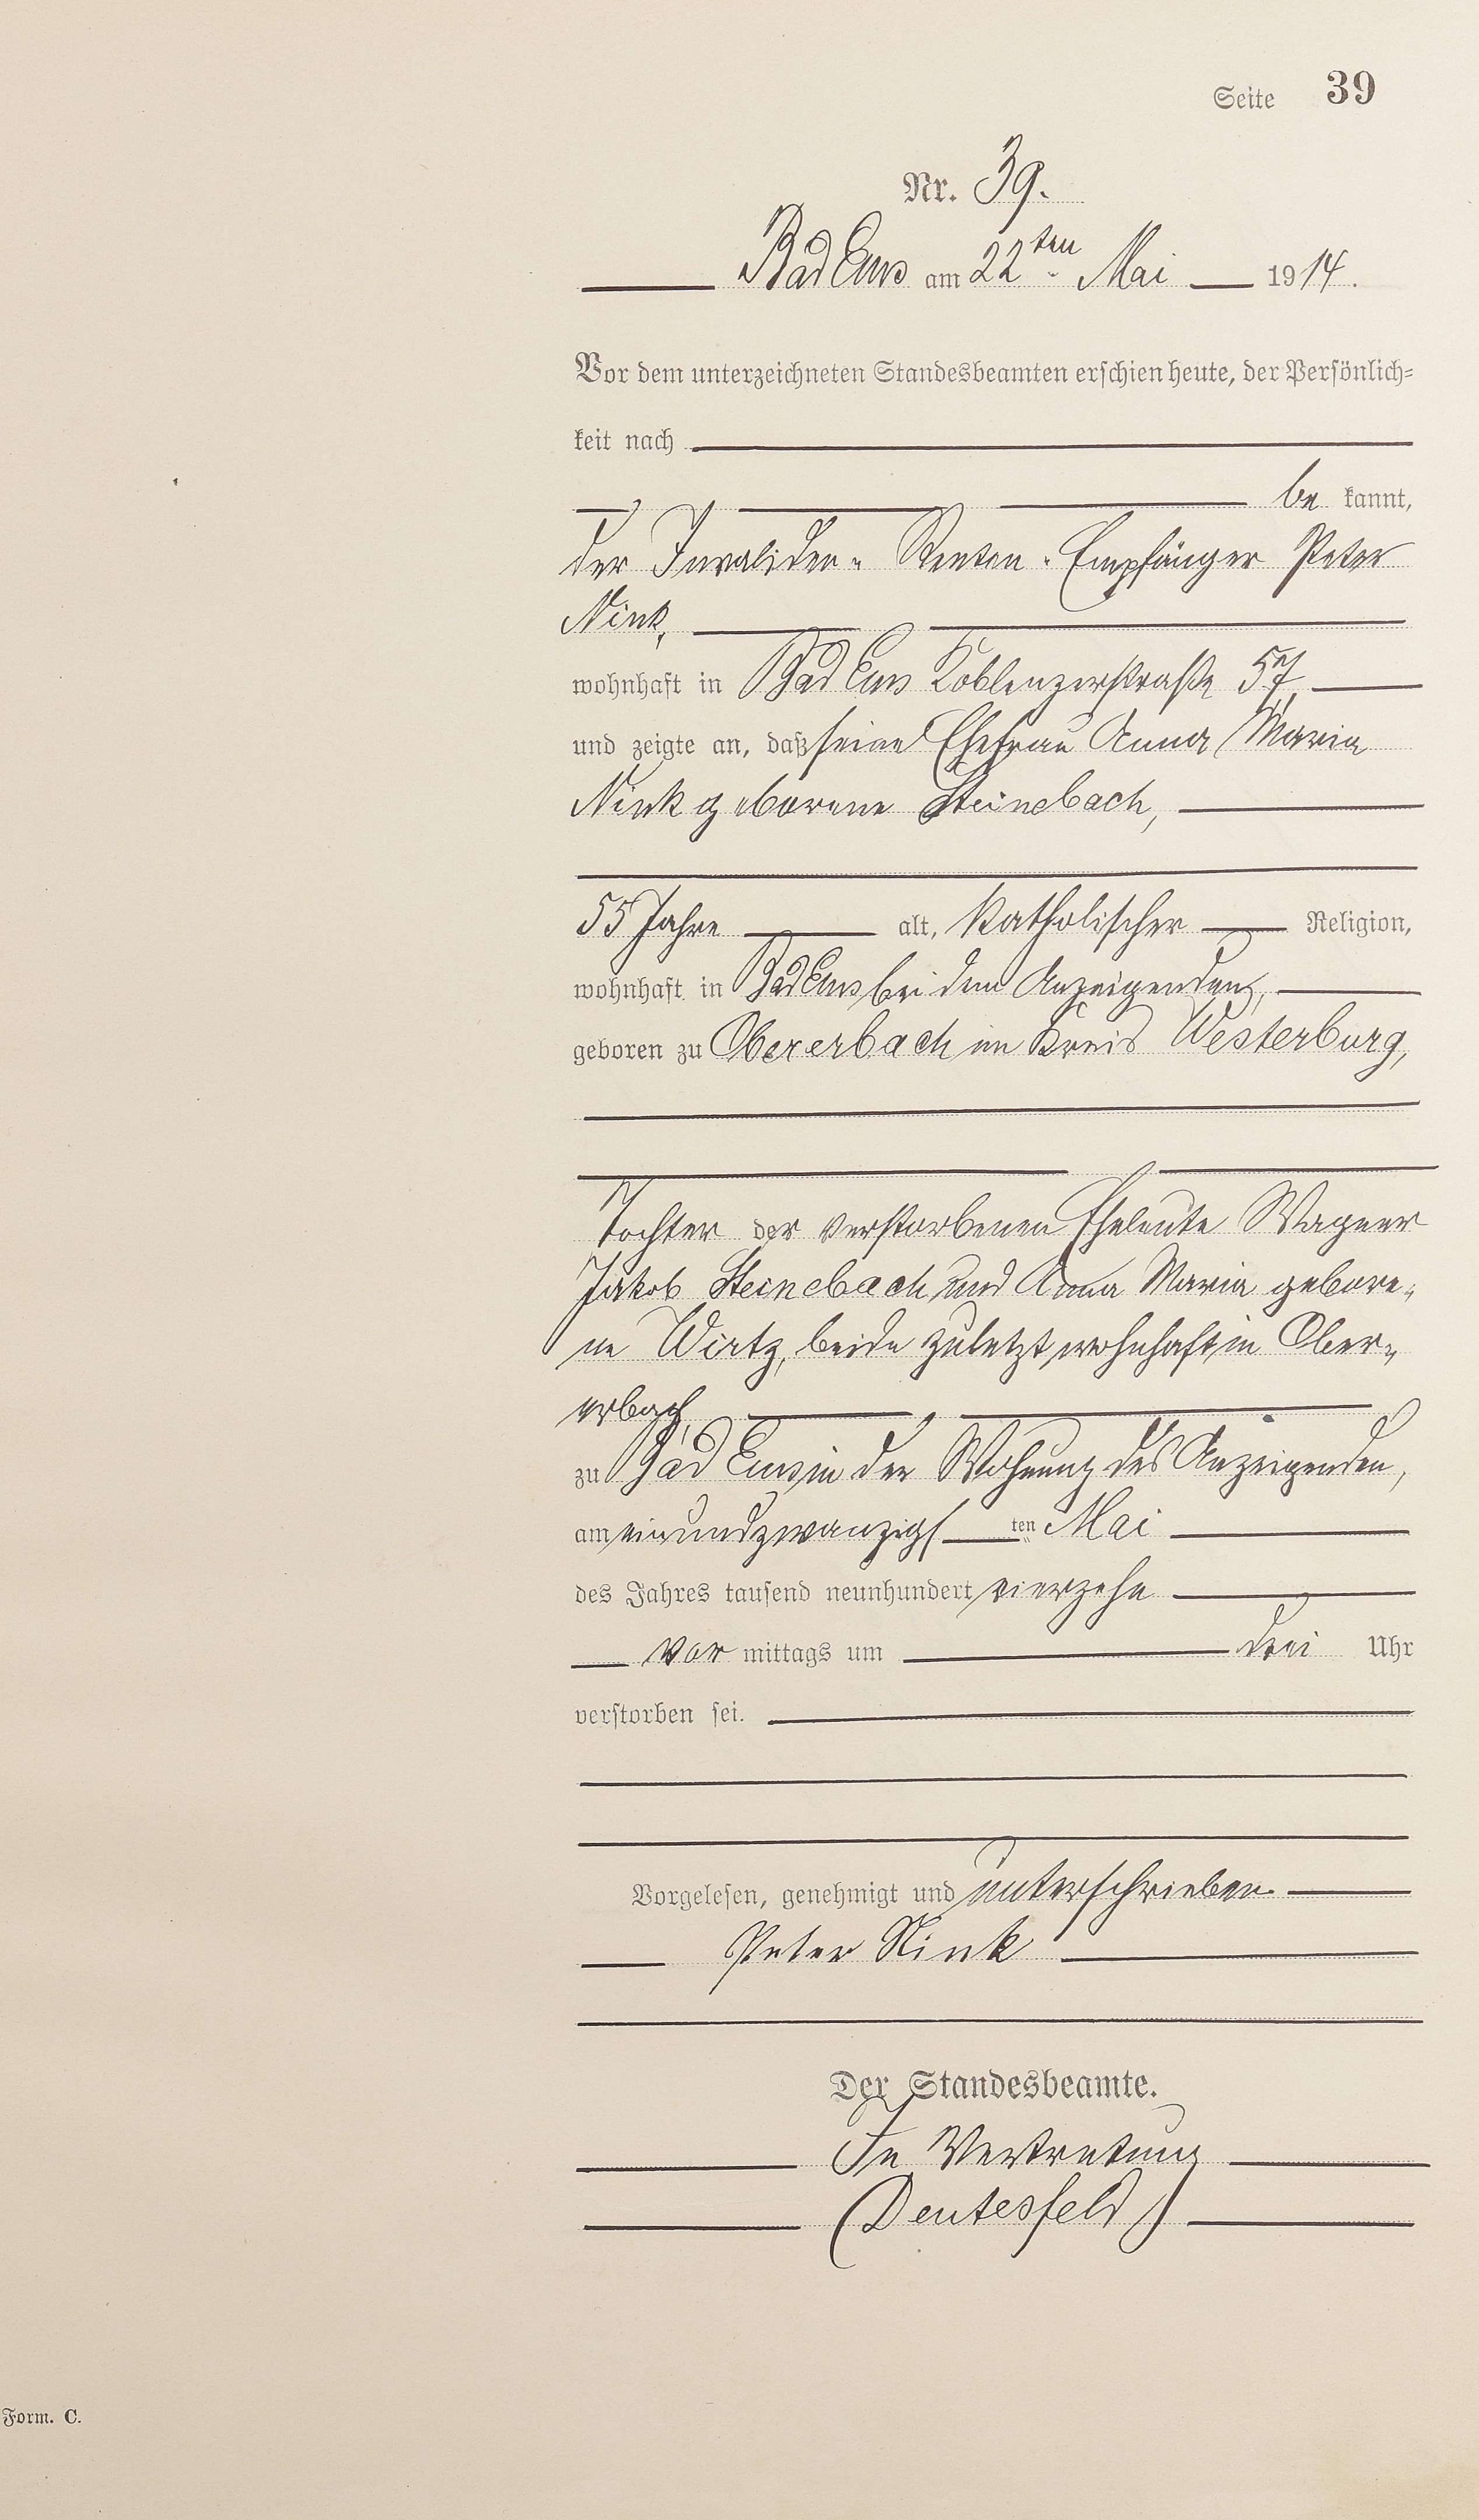 Seite 39
Nr. 39.
Bad Ems am 22ten Mai 1914.
Vor dem unterzeichneten Standesbeamten erschien heute, der Persönlich-
keit nach
be kannt,
der Invaliden-Renten-Empfänger Peter
Nink,
wohnhaft in Bad Ems Koblenzerstraße 57,
und zeigte an, daß seine Ehefrau Anna Maria
Nink geborene Steinebach,
55 Jahre alt, katholischer Religion,
wohnhaft in Bad Ems bei dem Anzeigenden,
geboren zu Obererbach im Kreis Westerburg,
Tochter der verstorbenen Eheleute Wagner
Jakob Steinebach und Anna Maria gebore-
ne Wirtz, beide zuletzt wohnhaft in Ober-
erbach,
zu Bad Ems in der Wohnung des Anzeigenden,
am einundzwanzigsten Mai
des Jahres tausend neunhundert vierzehn
vor mittags um drei Uhr
verstorben sei.
Vorgelesen, genehmigt und unterschrieben.
Peter Nink
Der Standesbeamte.
In Vertretung
(Deutesfeld)
Form. C.